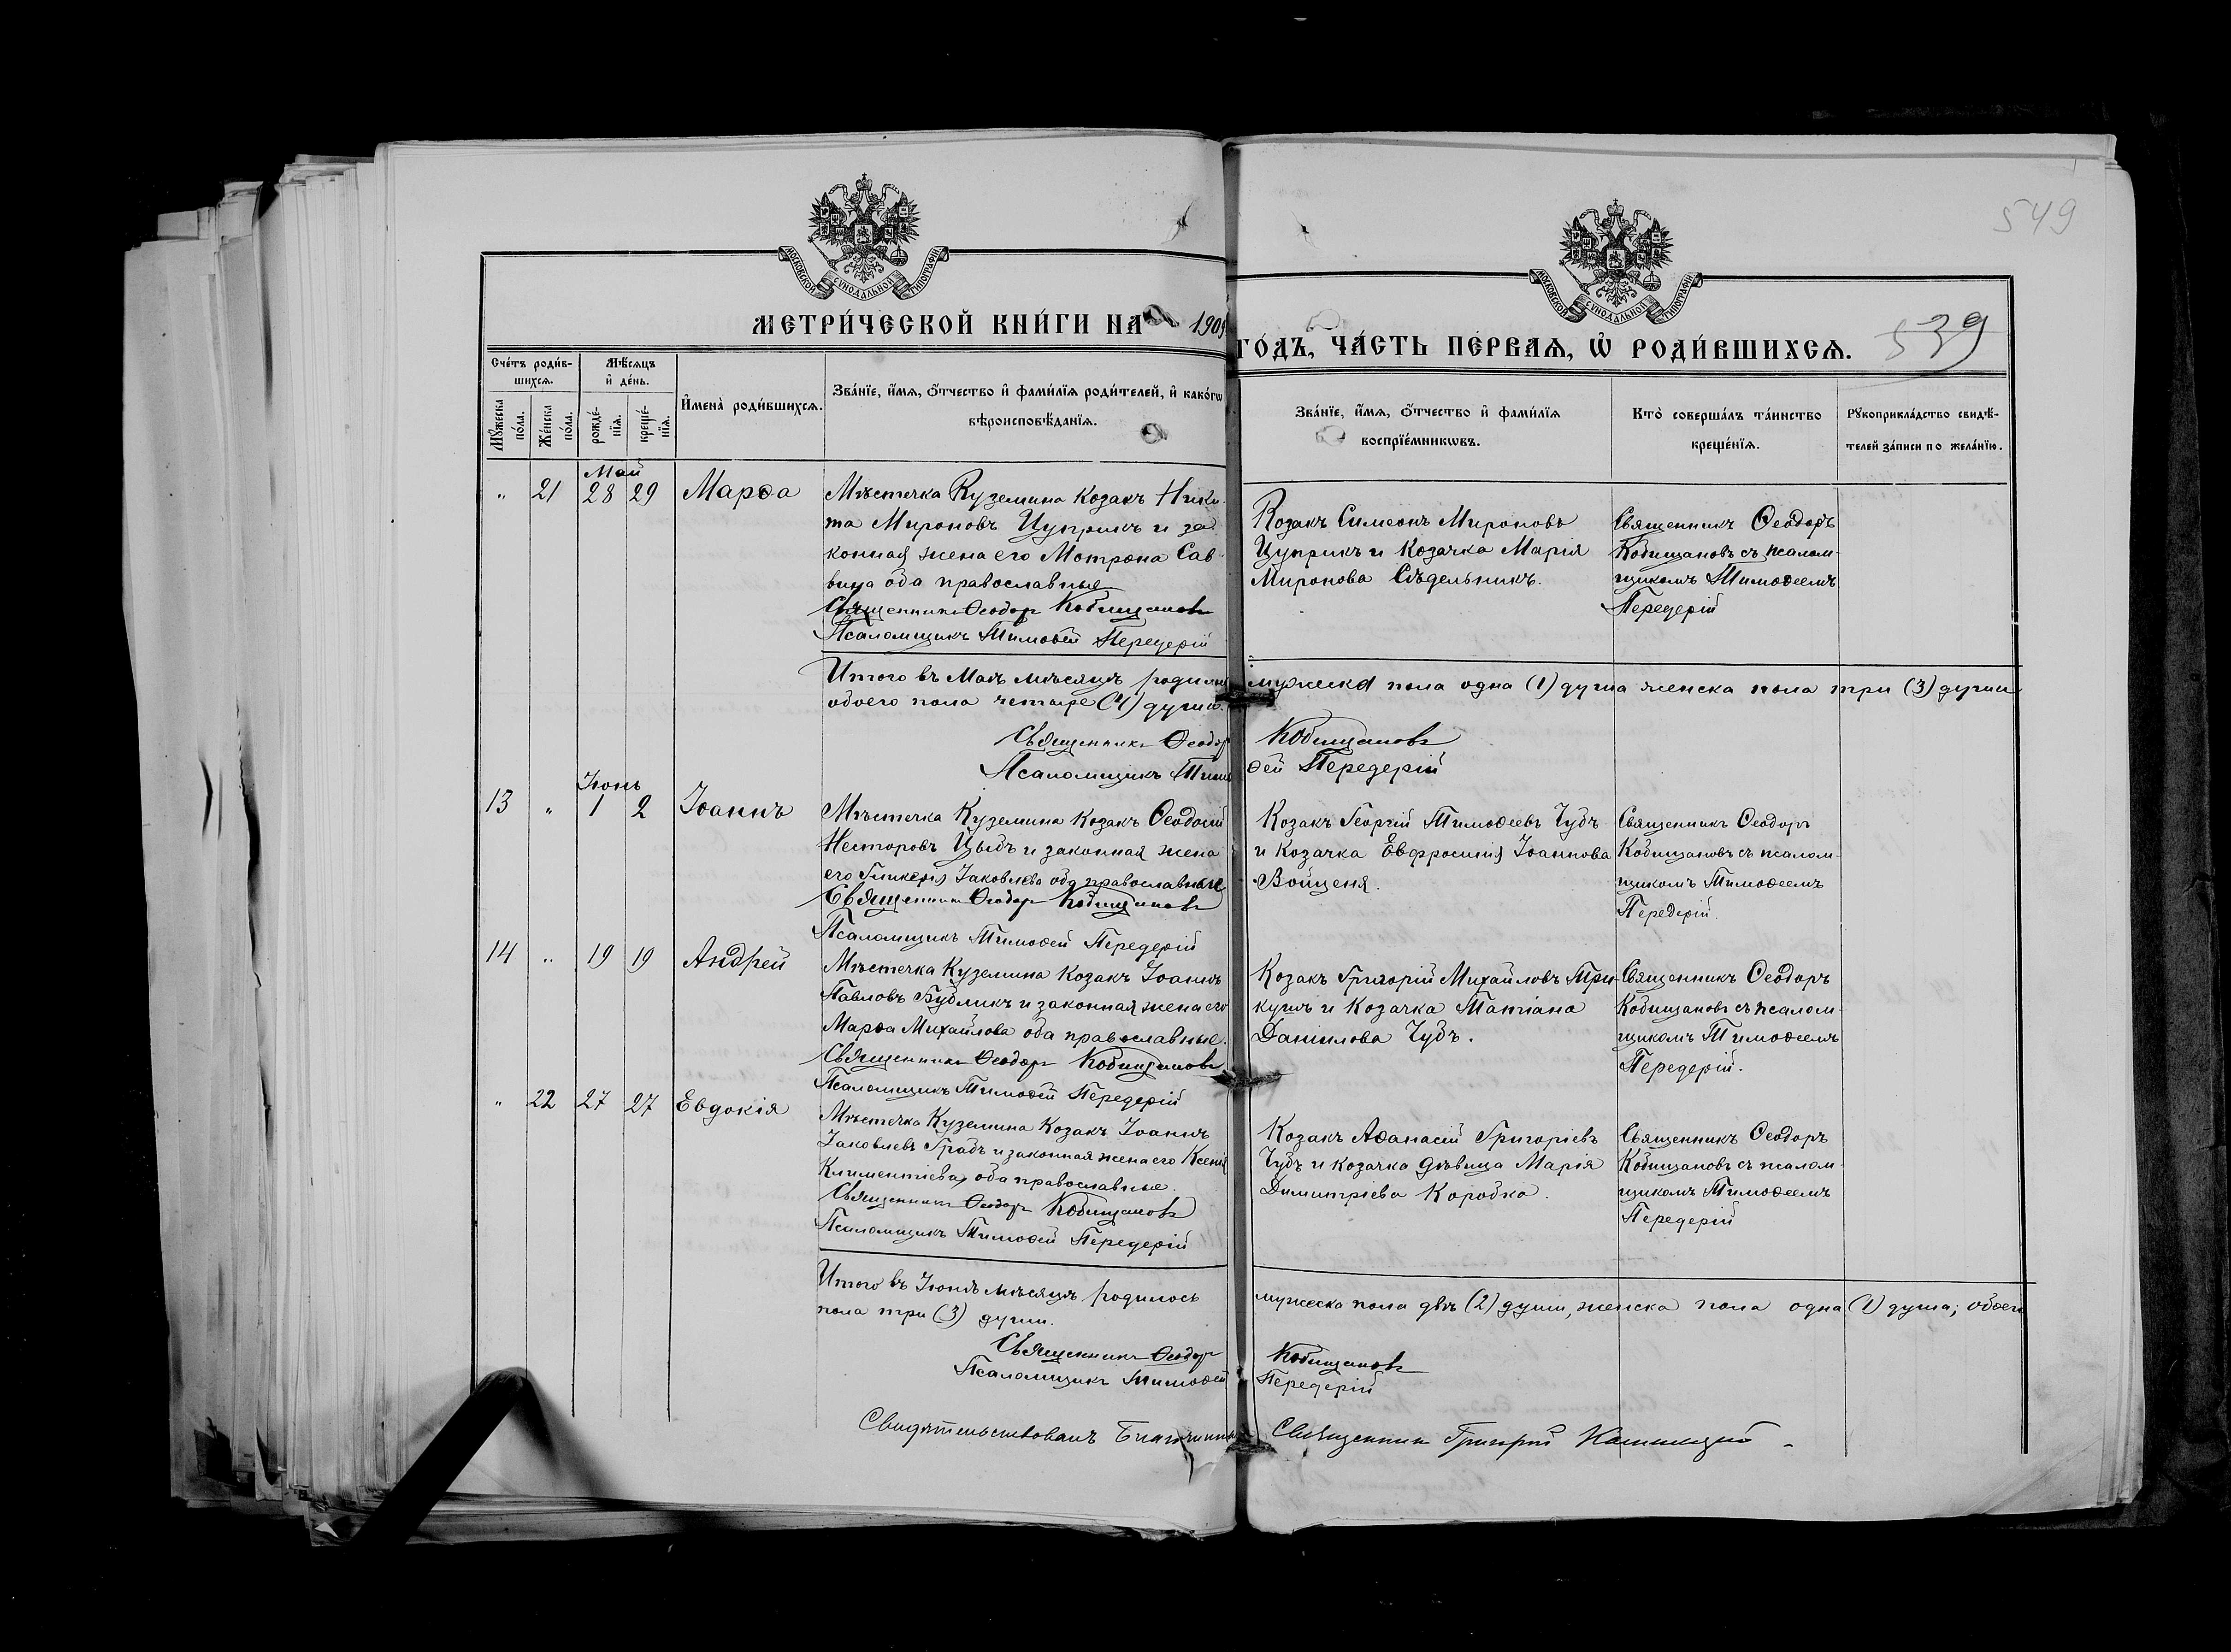 549
МОСКОВСКОЙ СУНОДАЛЬНОЙ ТИПОГРАФІИ
МОСКОВСКОЙ СУНОДАЛЬНОЙ ТИПОГРАФІИ
МЕТРИ́ЧЕСКОЙ КНИ́ГИ НА 1909
ГО́ДЪ, ЧА́СТЬ ПЕ́РВАѦ, Ѡ РОДИ́ВШИХСѦ.
539
Сче́тъ роди́в-
шихсѧ.
Мꙋ́жеска по́ла.
Же́нска по́ла.
Мѣ́сѧцъ
и҆ де́нь.
рожде́-
нїѧ.
креще́-
нїѧ.
И҆мена̀ роди́вшихсѧ.
Зва́нїе, и҆́мѧ, ѻ҆́тчество и҆ фами́лїѧ роди́телей, и҆ како́гѡ
вѣроисповѣ́данїѧ.
Зва́нїе, и҆́мѧ, ѻ҆́тчество и҆ фами́лїѧ
воспрїе́мникѡвъ.
Кто̀ соверша́лъ та́инство
креще́нїѧ.
Рꙋкоприкла́дство свидѣ́-
телей за́писи по жела́нїю.
Май
" 21 28 29 Марѳа
Мѣстечка Куземина Козакъ Ники-
та Мироновъ Цуприкъ и за-
конная жена его Мотрона Сав-
вина оба православные
Священникъ Ѳеодоръ Кобищановъ
Псаломщикъ Тимоѳей Передерій
Козакъ Симеонъ Мироновъ
Цуприкъ и Козачка Марія
Миронова Сѣдельникъ.
Священникъ Ѳеодоръ
Кобищановъ съ псалом-
щикомъ Тимоѳеемъ
Передерій
Итого въ Маѣ мѣсяцѣ родилось мужеска пола одна (1) душа женска пола три (3) души
обоего пола четыре (4) души.
Священникъ Ѳеодоръ Кобищановъ
Псаломщикъ Тимоѳей Передерій
Іюнь
13 " 1 2 Іоаннъ
Мѣстечка Куземина Козакъ Ѳеодосій
Несторовъ Цыбъ и законная жена
его Гликерія Іаковлева оба православные
Священникъ Ѳеодоръ Кобищановъ
Псаломщикъ Тимоѳей Передерій
Козакъ Георгій Тимоѳеевъ Чубъ
и Козачка Евфросинія Іоаннова
Войценя.
Священникъ Ѳеодоръ
Кобищановъ съ псалом-
щикомъ Тимоѳеемъ
Передерій.
14 " 19 19 Андрей
Мѣстечка Куземина Козакъ Іоаннъ
Павловъ Бубликъ и законная жена его
Марѳа Михайлова оба православные.
Священникъ Ѳеодоръ Кобищановъ
Псаломщикъ Тимоѳей Передерій
Козакъ Григорій Михайловъ
и Козачка Татіана
Даніилова Чубъ.
Священникъ Ѳеодоръ
Кобищановъ съ псалом-
щикомъ Тимоѳеемъ
Передерій.
" 22 27 27 Евдокія
Мѣстечка Куземина Козакъ Іоаннъ
Іаковлевъ Грабъ и законная жена его Ксенія
Климентіева оба православные.
Священникъ Ѳеодоръ Кобищановъ
Псаломщикъ Тимоѳей Передерій
Козакъ Аѳанасій Григоріевъ
Чубъ и козачка дѣвица Марія
Димитріева Коробка.
Священникъ Ѳеодоръ
Кобищановъ съ псалом-
щикомъ Тимоѳеемъ
Передерій
Итого въ Іюнѣ мѣсяцѣ родилось мужеска пола двѣ (2) души, женска пола одна (1) душа; обоего
пола три (3) души.
Священникъ Ѳеодоръ Кобищановъ
Псаломщикъ Тимоѳей Передерій
Свидѣтельствовалъ Благочинный Священникъ Григорій